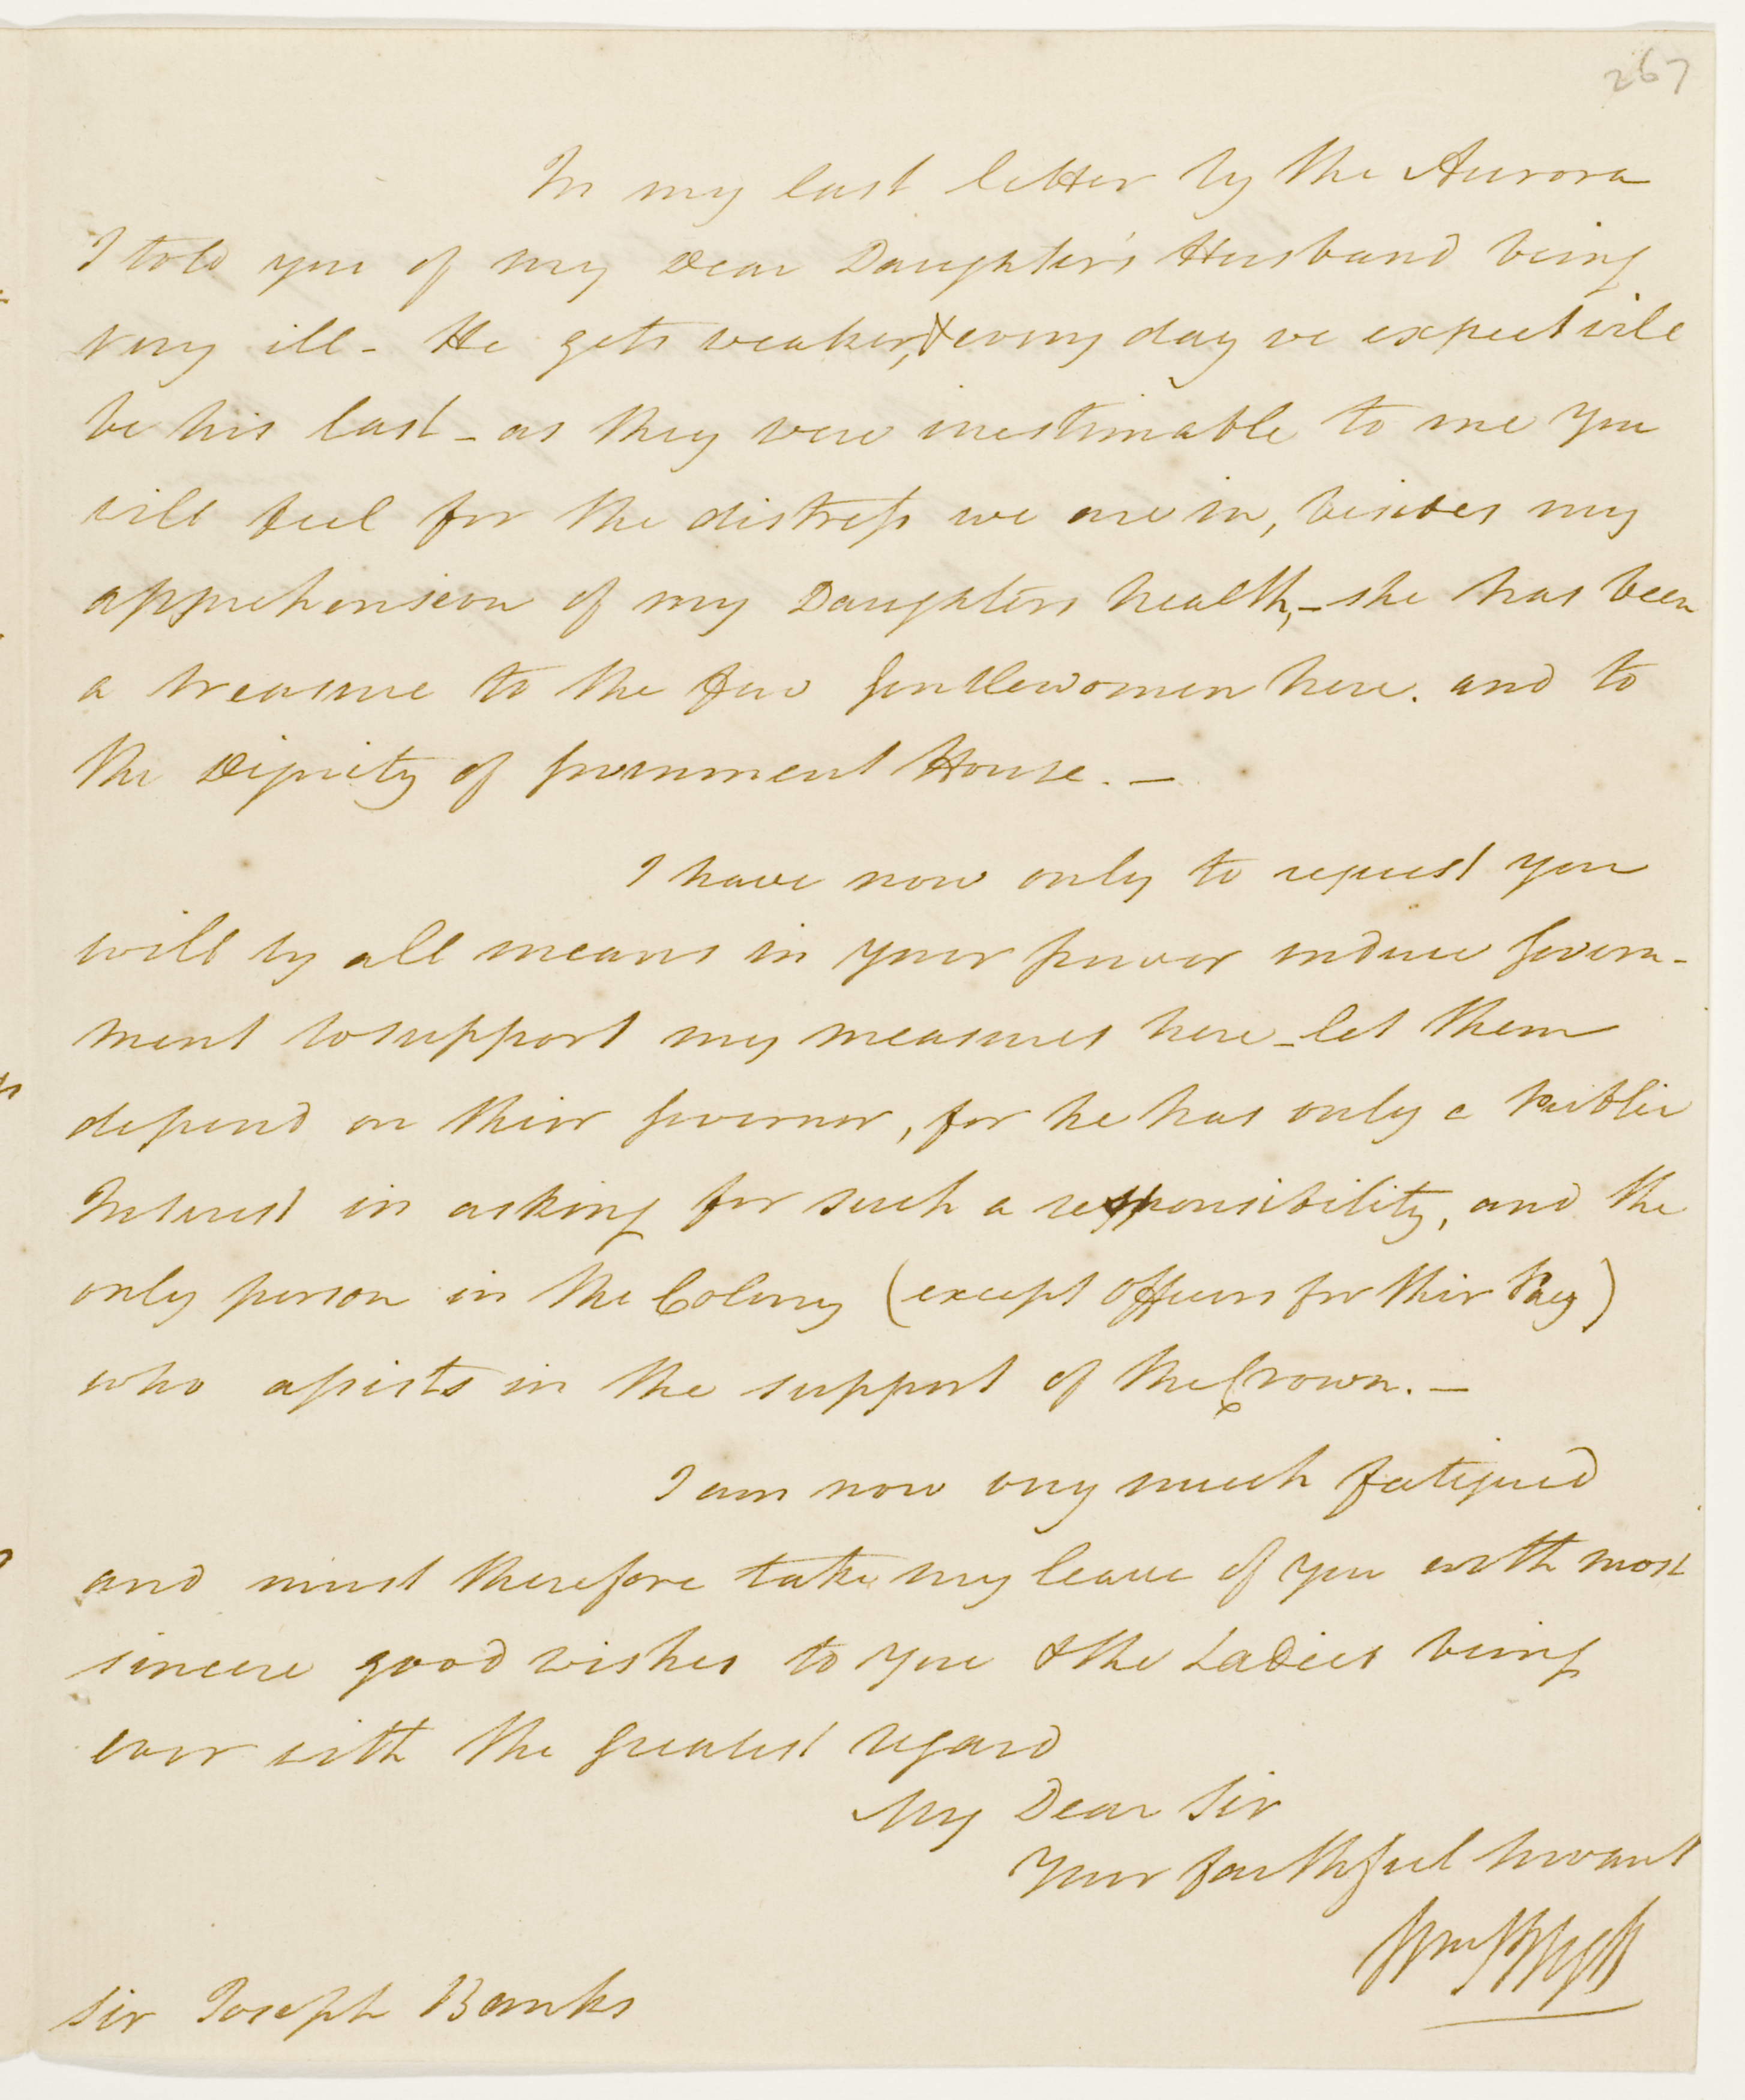 267
In my last letter by the Aurora
I told you of my Dear Daughter's Husband being
very ill - He gets weaker, & every day we expect will
be his last - as they were inestimable to me you
will feel for the distress we are in, besides my
apprehension of my Daughters health, - she has been
a treasure to the few Gentlewomen here. and to
the Dignity of Government House. -
I have now only to request you
will by all means in your power induce Govern-
ment to support my measures here - let them
depend on their Governor, for he has only a Public
Interest in asking for such a responsibility, and the
only person in the Colony (except Officers for their Pay)
who assists in the support of the Crown. -
I am now very much fatigued
and must therefore take my leave of you with most
sincere good wishes to you & the Ladies being
ever with the greatest regard
My Dear Sir
Your faithful Servant
Wm Bligh
Sir Joseph Banks